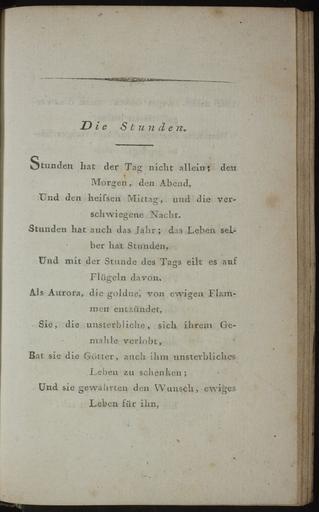 Die Stunden.
Stunden hat der Tag nicht allein; den
Morgen, den Abend,
Und den heifsen Mittag, und die ver-
schwiegene Nacht.
Stunden hat auch das Jahr; das Leben sel-
ber hat Stunden,
Und mit der Stunde des Tags eilt es auf
Flügeln davon.
Als Aurora, die goldne, von ewigen Flam-
men entzündet,
Sie, die unsterbliche, sich ihrem Ge-
mahle verlobt,
Bat sie die Götter, auch ihm unsterbliches
Leben zu schenken;
Und sie gewährten den Wunsch, ewiges
Leben für ihn,